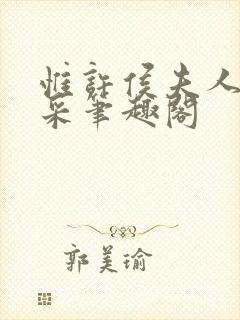 惟許侯夫人
采筆趣閣
郭美瑜